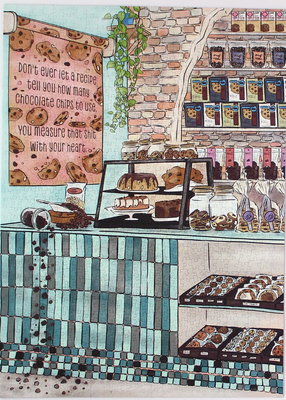 Don't ever let a recipe
tell you how many
chocolate chips to use.
you measure that shit
with your heart.